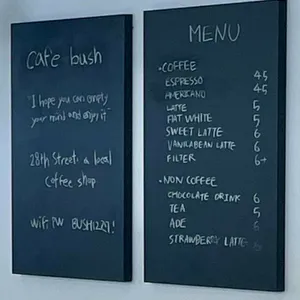 Cafe bush
"I hope you can empty
your mind and enjoy it"
28th Street: a local
Coffee shop
WiFi PW BUSH1229!
MENU
·COFFEE
ESPRESSO 4.5
AMERICANO 4.5
LATTE 5
FLAT WHITE 5
SWEET LATTE 6
VANILABEAN LATTE 6
FILTER 6+
·NON COFFEE
CHOCOLATE DRINK 6
TEA 5
ADE 6
STRAWBERRY LATTE 6